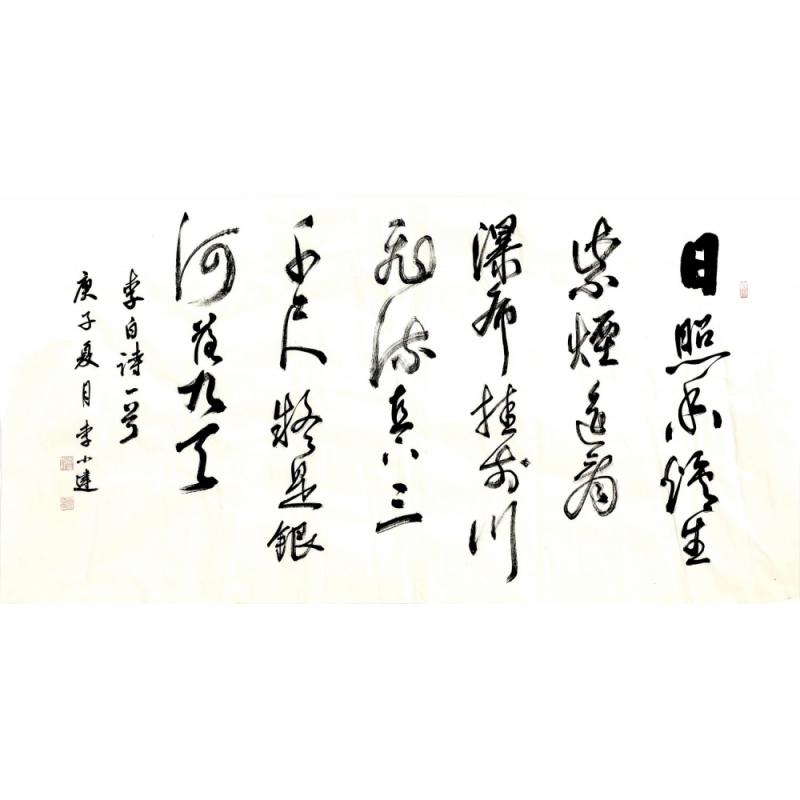 日照香爐生
紫煙遥看
瀑布挂前川
飛流直下三
千尺疑是銀
河落九天
李白詩一首
庚子夏月 李小